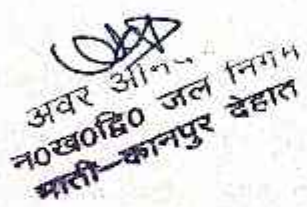 अवर
न०ख०द्वि० जल निगम
माती-कानपुर देहात